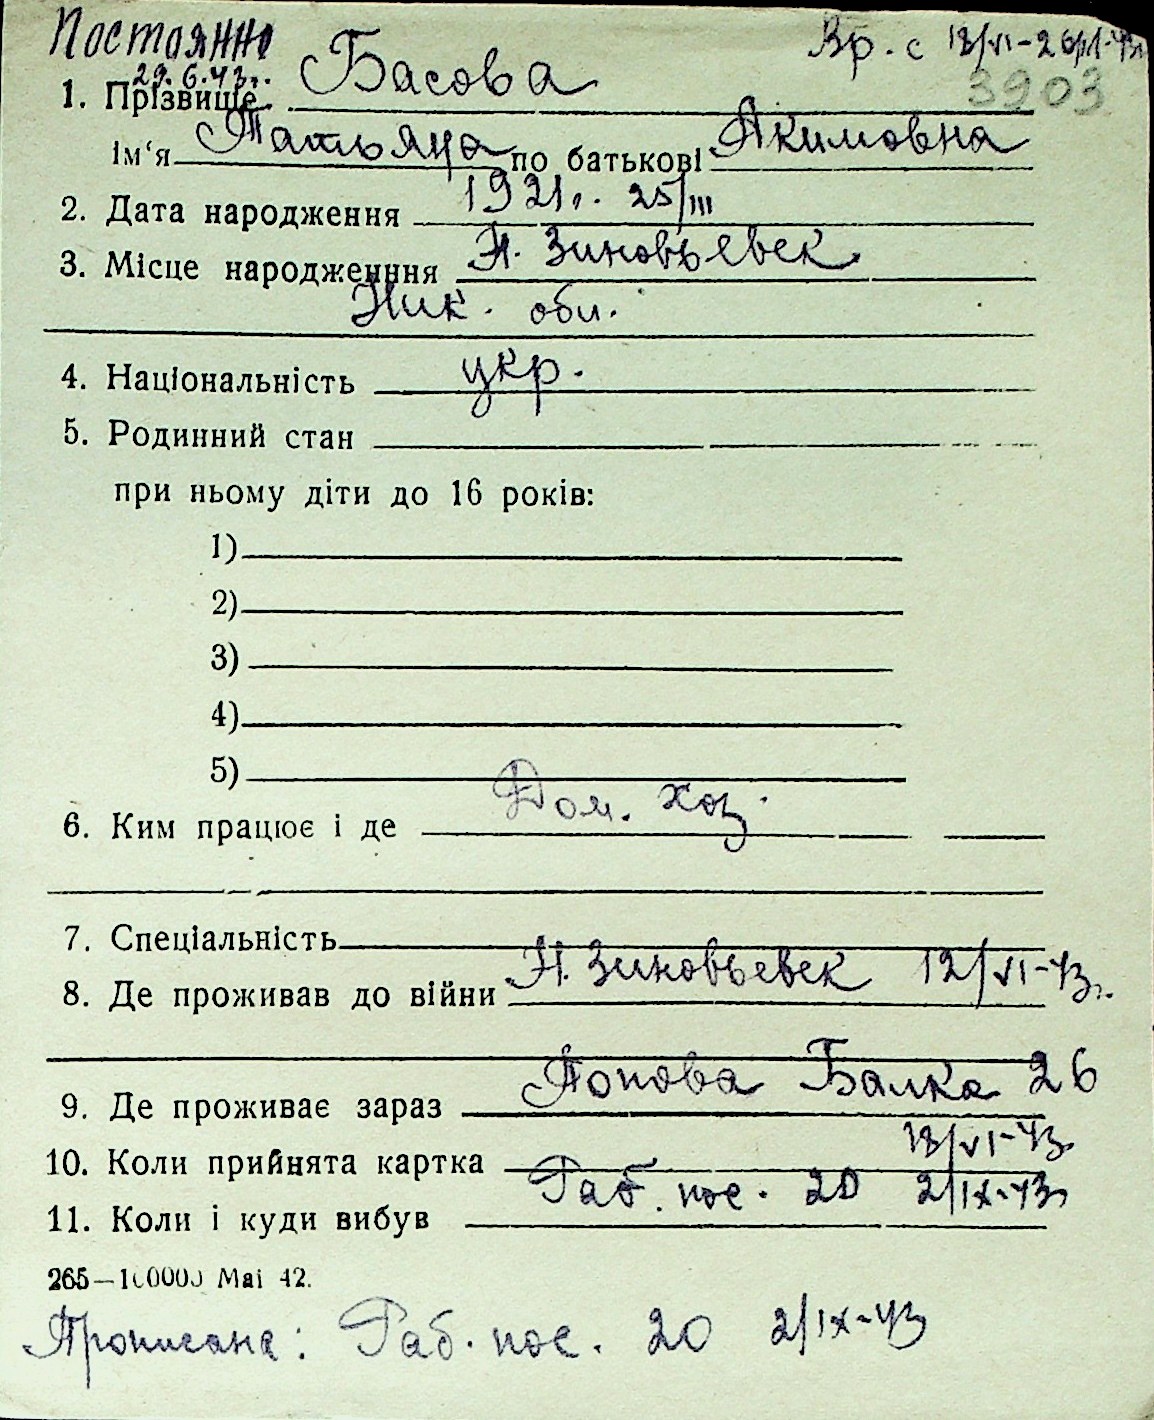 Постоянно Вр. с 13/VI-26/VI-43г.
29.6.43г. 3903
1. Прізвище Басова
Ім‘я Татьяна по батькові Акимовна
2. Дата народження 1921г. 25/III
3. Місце народженння Н. Зиновьевек
Ник. обл.
4. Національність укр.
5. Родинний стан
при ньому діти до 16 років:
1)
2)
3)
4)
5)
6. Ким працює і де Дом. хоз.
7. Спеціальність
8. Де проживав до війни Н. Зиновьевек 12/VI-43г.
9. Де проживає зараз Попова Балка 26
10. Коли прийнята картка 13/VI-43
11. Коли і куди вибув Раб. пос. 20 2/IX-43г
265—100000 Mai 42.
Прописана: Раб. пос. 20 2/IX-43